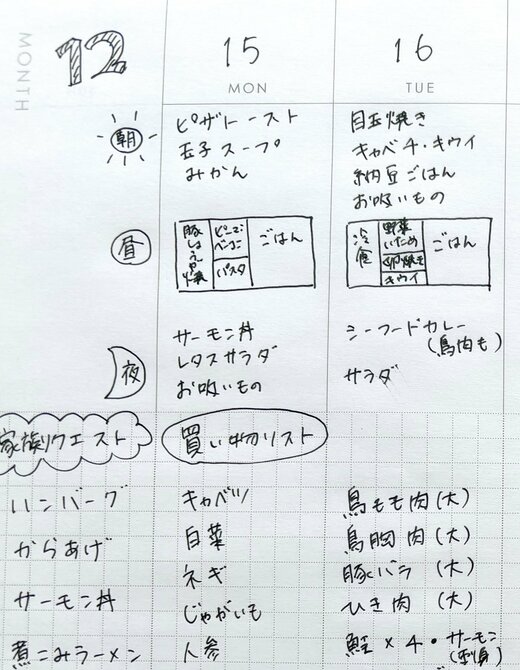 MONTH
12
15
MON
16
TUE
朝
ピザトースト
玉子スープ
みかん
目玉焼き
キャベチ・キウイ
納豆ごはん
お吸いもの
昼
豚しょうが焼
ピーマン
パスタ
ごはん
冷食
野菜
いため
卵焼き
キウイ
ごはん
夜
サーモン丼
レタスサラダ
お吸いもの
シーフードカレー
(鳥肉も)
サラダ
家族リクエスト
買い物リスト
ハンバーグ
からあげ
サーモン丼
煮こみラーメン
キャベツ
白菜
ネギ
じゃがいも
人参
鳥もも肉(大)
鳥胸肉(大)
豚バラ(大)
ひき肉(大)
鮭×4・サーモン
(刺身)